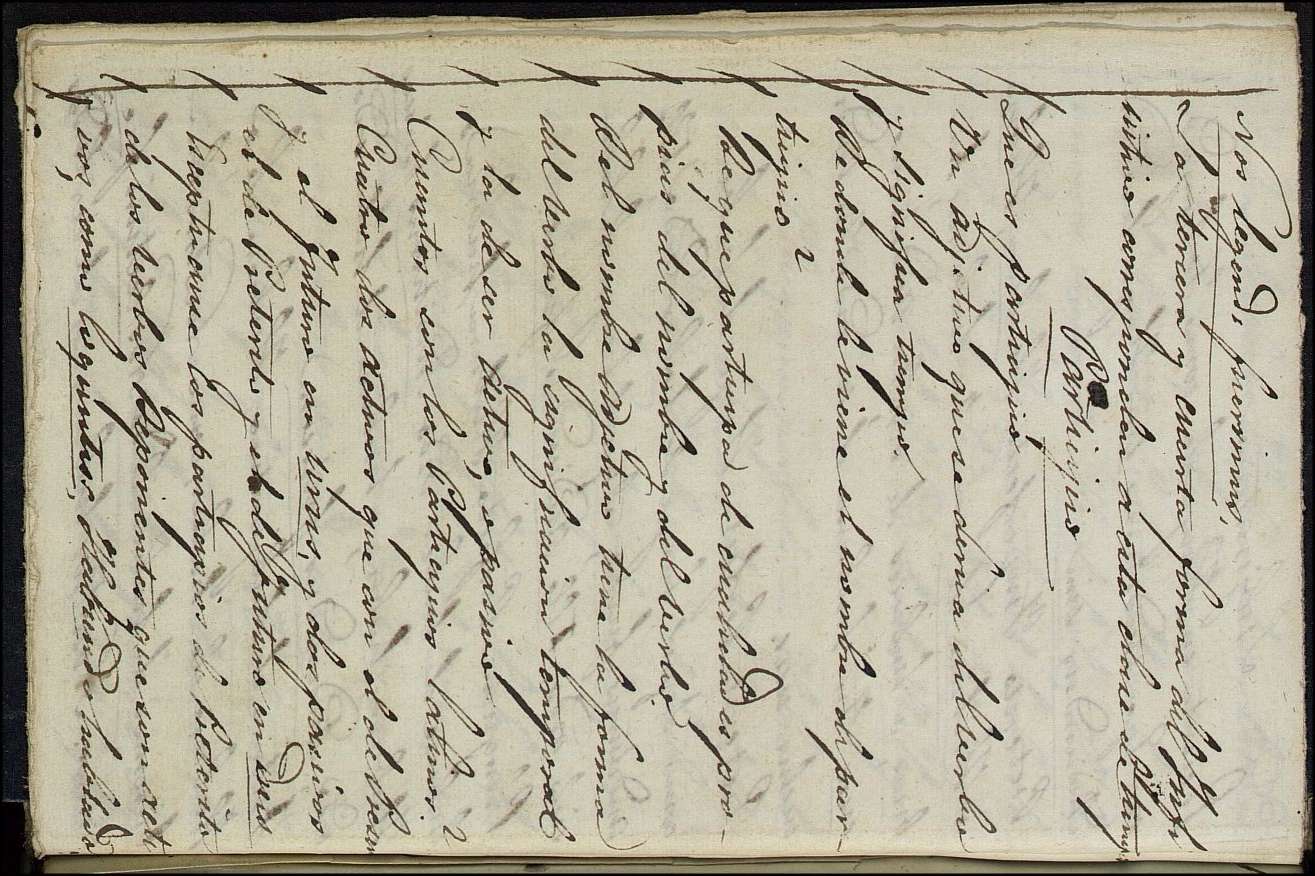 Nos legend, fuerimus,
La tercera y cuarta forma del Infi
nitivo corresponden a esta clase de tiemp
Participio
Que es participio?
Un adjetivo que se deriva del verbo
y significa tiempo.
De donde le viene el nombre de par-
ticipio?
De que participa de cualidades pro-
pias del nombre y del verbo
Del nombre adjetivo tiene la forma
del verbo la significacion temporal
y la de ser activo, o pasivo
Cuantos son los Participios latinos?
Cuatro dos activos que son el de presen
y el futuro en urus, y dos pasivos
el de Preterito y el de futuro en Dus
Exceptuanse los participios de Preterito
de los verbos deponentes que son acti
vos, como loquutus, el que habiend hablado